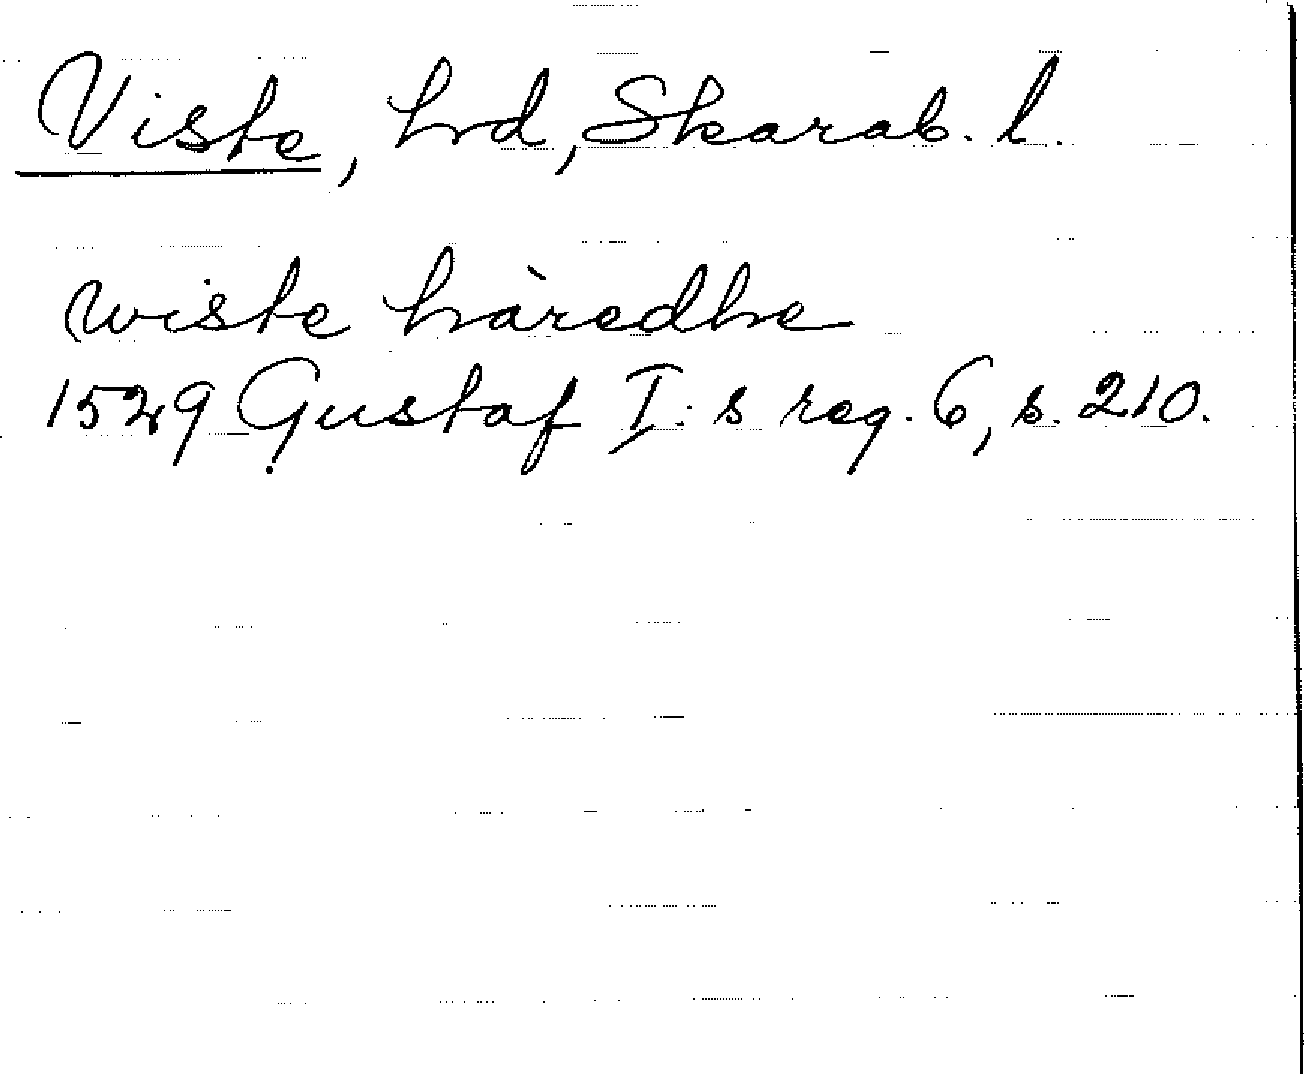 Viste, hrd, Skarab. l.
wiste hàredhe
1529 Gustaf I:s reg. 6, s. 210.